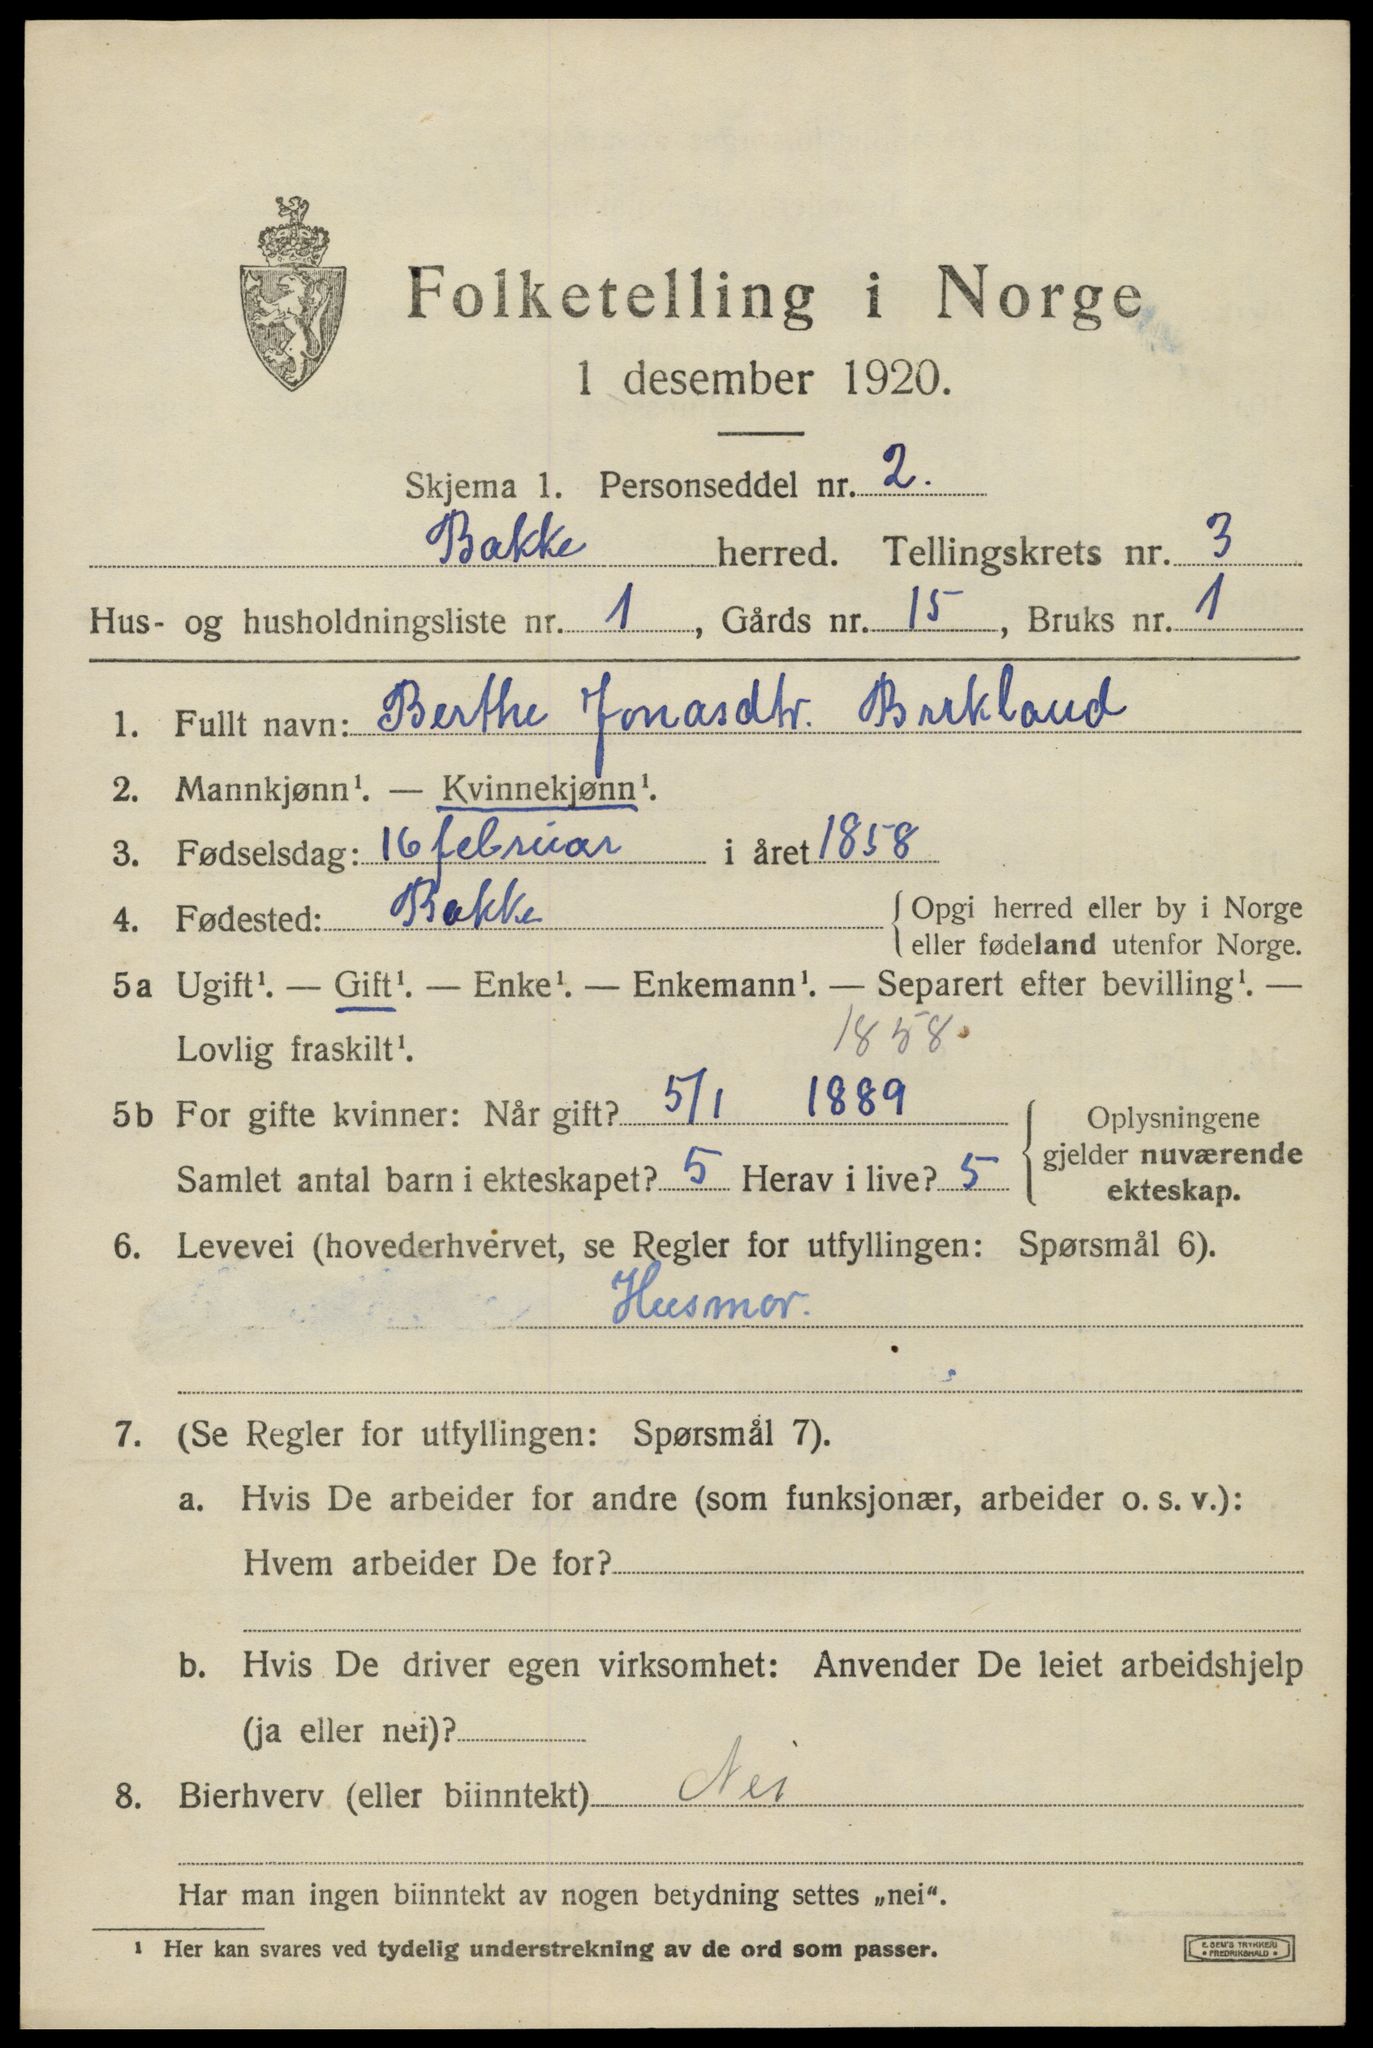 Folketelling i Norge
1 desember 1920.
Skjema 1. Personseddel nr. 2.
Bakke herred. Tellingskrets nr. 3
Hus- og husholdningsliste nr. 1, Gårds nr. 15, Bruks nr. 1
1. Fullt navn: Berthe Jonasdtr. Birkland
2. Mannkjønn¹. — Kvinnekjønn¹.
3. Fødselsdag: 16 februar i året 1858
4. Fødested: Bakke { Opgi herred eller by i Norge
eller fødeland utenfor Norge.
5a Ugift¹. — Gift¹. — Enke¹. — Enkemann¹. — Separert efter bevilling¹. —
Lovlig fraskilt¹. 1858
5b For gifte kvinner: Når gift? 5/1 1889
Samlet antal barn i ekteskapet? 5 Herav i live? 5
{ Oplysningene
gjelder nuværende
ekteskap.
6. Levevei (hovederhvervet, se Regler for utfyllingen: Spørsmål 6).
Husmor.
7. (Se Regler for utfyllingen: Spørsmål 7).
a. Hvis De arbeider for andre (som funksjonær, arbeider o. s. v.):
Hvem arbeider De for?
b. Hvis De driver egen virksomhet: Anvender De leiet arbeidshjelp
(ja eller nei)?
8. Bierhverv (eller biinntekt) Nei
Har man ingen biinntekt av nogen betydning settes „nei“.
¹ Her kan svares ved tydelig understrekning av de ord som passer.
E. SEM'S TRYKKERI
• FREDRIKSHALD •